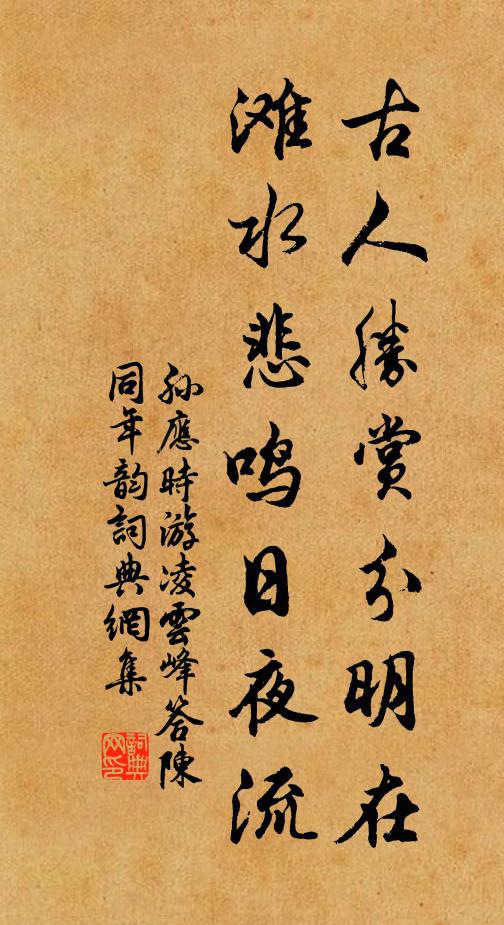 古人勝賞分明在
滩水悲鸣日夜流
孙應時游凌雲峰答陳
同年韵詞典網集
詞典网印